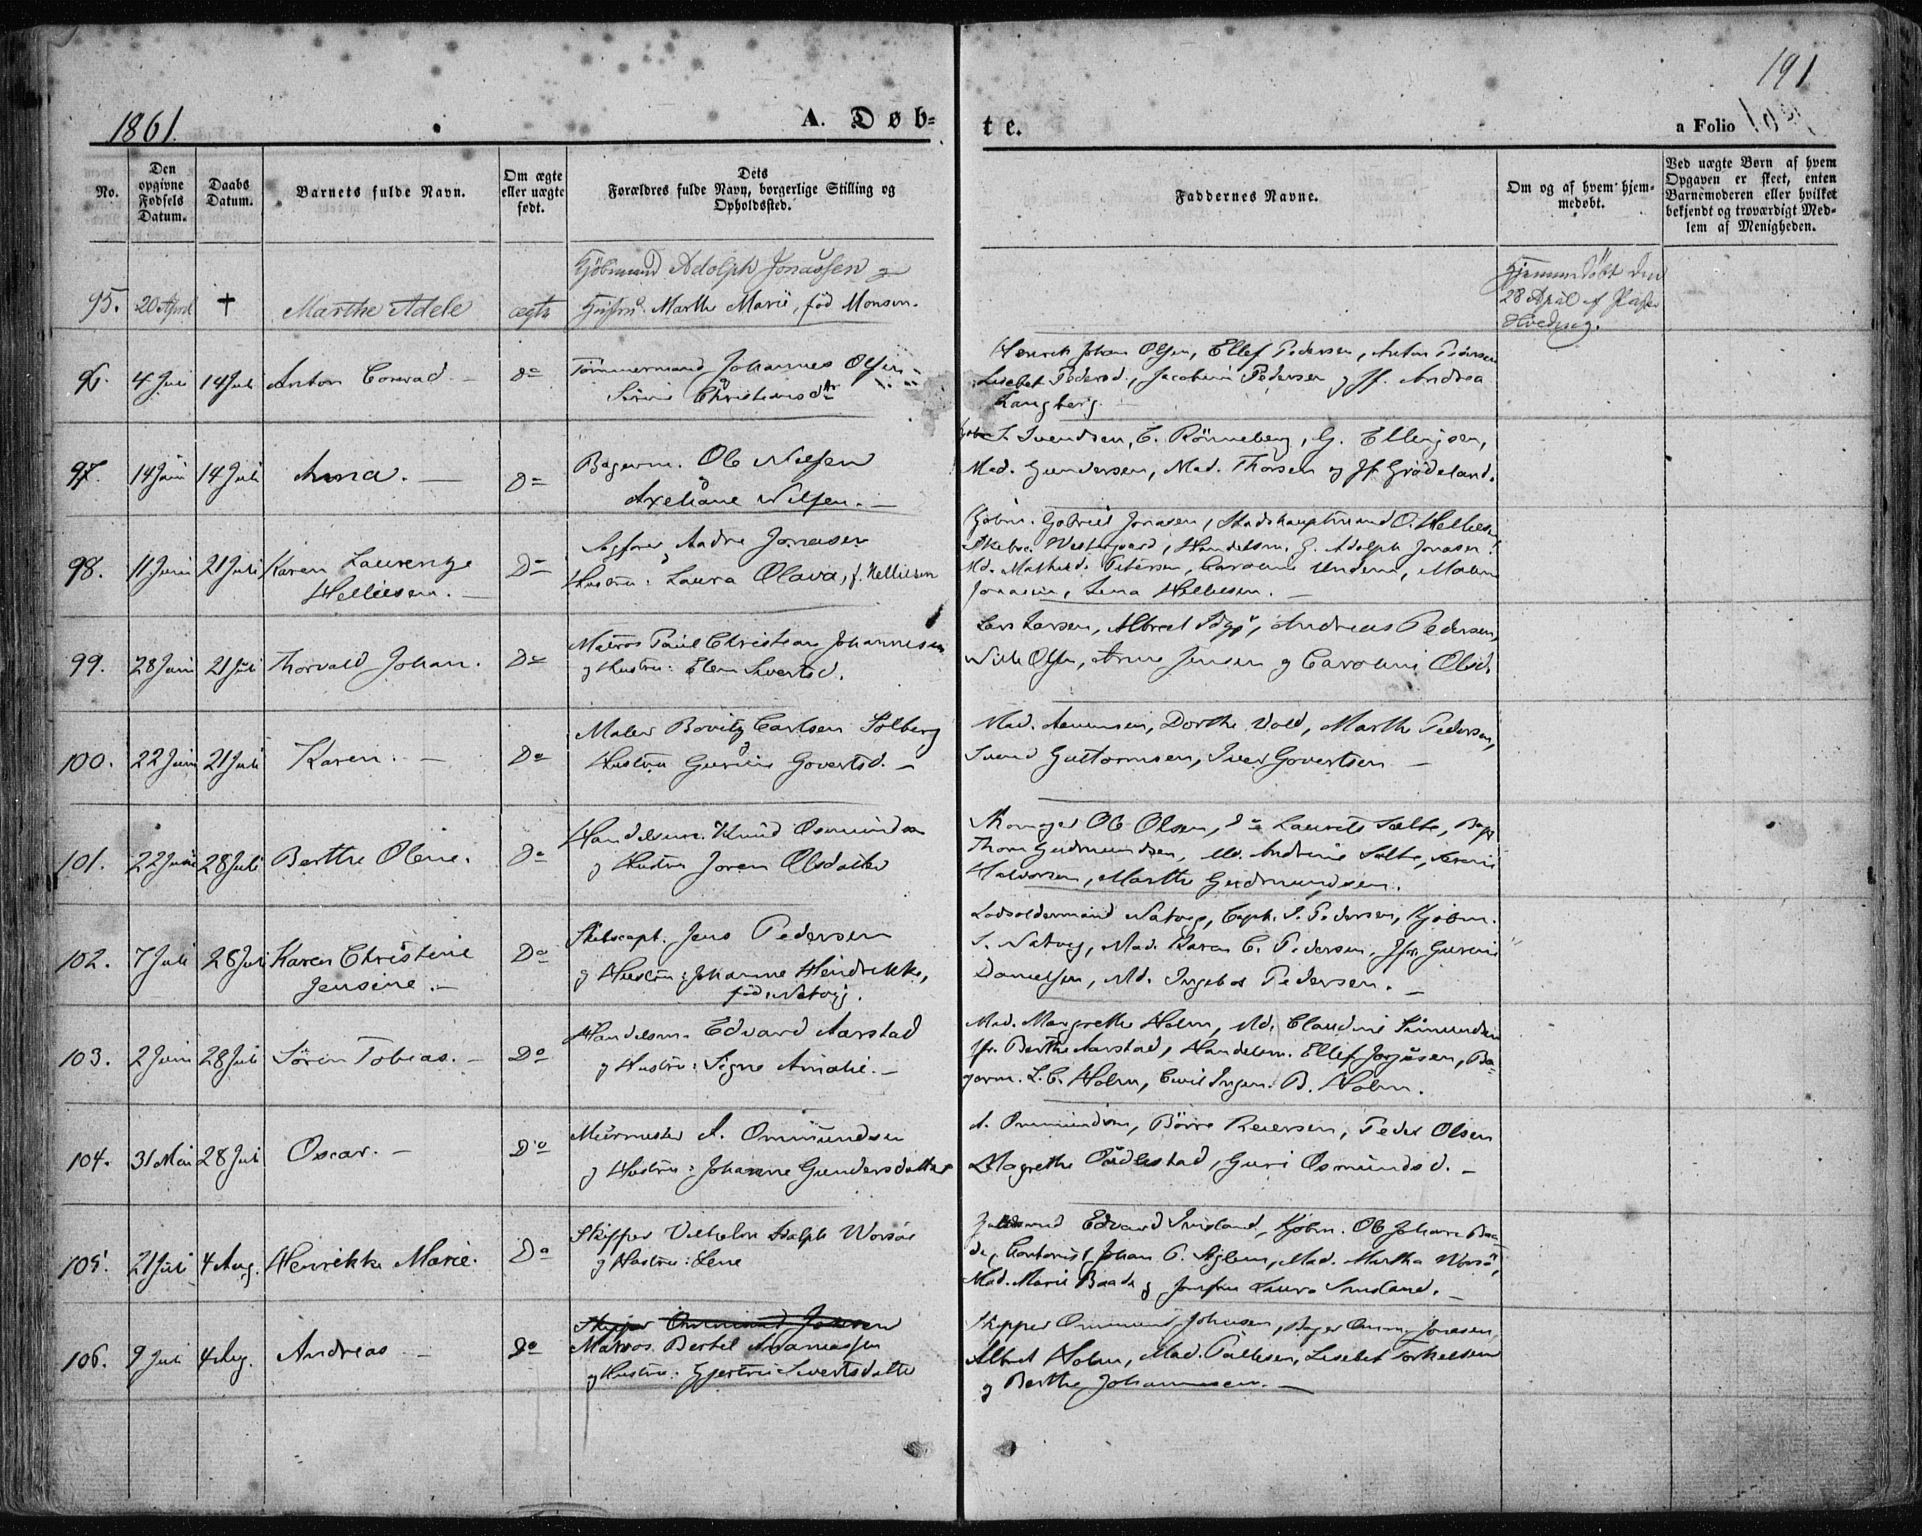 191
1861.
A. Døb-
te.
a Folio
No.
Den opgivne Fødsels Datum.
Daabs Datum.
Barnets fulde Navn.
Om ægte eller uægte født.
Dets Forældres fulde Navn, borgerlige Stilling og Opholdssted.
Faddernes Navne.
Om og af hvem hjem-
medøbt.
Ved uægte Børn af hvem
Opgaven er skeet, enten
Barnemoderen eller hvilket
bekjendt og troværdigt Med-
lem af Menigheden.
95. 20 April † Marthe Adele ægte
Kjøbmand Adolph Jonassen og
Hustru Marthe Marie, fød Monsen.
28 April af
96. 4 Juli 14 Juli Anton Conrad. — do
Tømmermand Johannes Olsen
Christiansdr
Henrik Johan Olsen, Ellef Pedersen, Anton Pedersen
Lisebet Pedersd., Jacobine Pedersen og Jf. Andrea
Langberg.
97. 14 Juni 14 Juli Anna. — Do
Bagerm. Ole Nilsen
Axeliane Nilsen. —
Svendsen, C. Rönneberg, G. Ellingsen,
Mad. Gundersen, Mad. Thorsen og Jf. Grødeland.
98. 11 Juni 21 Juli Karen Laurenze
Helliesen. — Do
Sagfører Andre Jonasen
Hustru: Laura Olava, f. Helliesen
Kjøbm. Gabriel Jonasen, Stadshauptmand O. Helliesen
Westergaard, Handelsm. G. Adolph Jonasen
Md. Mathilde Petersen, Caroline
Jonasen, Lina Helliesen. —
99. 28 Juni 21 Juli Thorvald Johan. Do
Matros Paul Christian Johannesen
og Hustru: Elen Sivertsd.
Lars Larsen, Albret Andreas Pedersen,
Olsen, Anne Jensen og Caroline Olsd.
100. 22 Juni 21 Juli Karen. — Do
Maler Bovitz Carlsen Solberg
Hustru Gurine Govertsd. —
Mad. Dorthe Vold, Marthe Pedersen,
Svend Guttormsen, Iver Govertsen —
101. 22 Juni 28 Juli Berthe Oline. Do
Handelsm. Knud Osmundsen
og Hustru Joren Olsdatter
Ole Olsen, do Laurits Salte,
Thom Gudmundsen, Md. Andrine Salte, Serine
Halvorsen, Marthe Gudmundsen.
102. 7 Juli 28 Juli Karen Christine
Jensine. — Do
Skibscapt. Jens Pedersen
og Hustru: Johanne Hendrikke,
fød Natvig.
Lodsoldermand Natvig, Capt. S. Pedersen, Kjøbm.
S. Natvig, Mad. Karen C. Pedersen, Jfr. Gurine
Danielsen, Md. Ingebor Pedersen. —
103. 2 Juni 28 Juli Sørin Tobias. — Do
Handelsm. Edvard Aarstad
og Hustru: Signe Amalie. —
Mad. Margrethe Holm, Md. Claudine Simundsen
Jfr. Berthe Aarstad, Handelsm. Ellef Ba-
germ. L. C. Holm, Civil Ingen. B. Holm.
104. 31 Mai 28 Juli Oscar. — Do
Muurmester A. Ommundsen
og Hustru: Johanne Gundersdatter
A. Ommundsen, Børre Reiersen, Peder Olsen
Magrethe Guri Osmundsd. —
105. 21 Juli 4 Aug. Henrikke Marie. Do
Skipper Vilhelm Adolph Worsøe
og Hustru: Lene
Edvard Smsland, Kjøbm. Ole Johan Baa-
de, Contorist Johan P. Mad. Martha Worsö,
Mad. Marie Baade og Jomfru Laura —
106. 9 Juli 4 Aug. Andreas — Do
Skipper Ommund Johnsen
Matros Bertel Ananiassen
og Hustru: Gjertrue Sivertsdatter
Skipper Ommund Johnsen, Bager Omm. Jonasen,
Albret Holm, Mad. Pallesen, Lisebet Torkelsen
og Berthe Johannesen. —